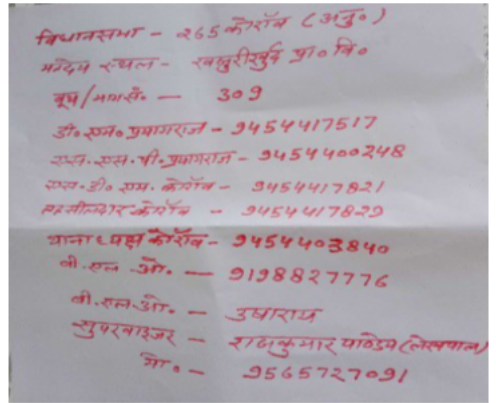 विधानसभा - 265 कोराँव (अनु०)
मतदेय स्थल - खजुरीखुर्द प्रा० वि०
बूथ/भाग सं० - 309
डी० एम० प्रयागराज - 9454417517
एस. एस. पी. प्रयागराज - 9454400248
एस. डी. एम. कोराँव - 9454417821
तहसीलदार कोराँव - 9454417829
थानाध्यक्ष कोराँव - 9454403840
वी. एल ओ. - 9198827776
वी. एल. ओ. - उषाराय
सुपरवाइजर - राजकुमार पाण्डेय (लेखपाल)
मो० - 9565727091